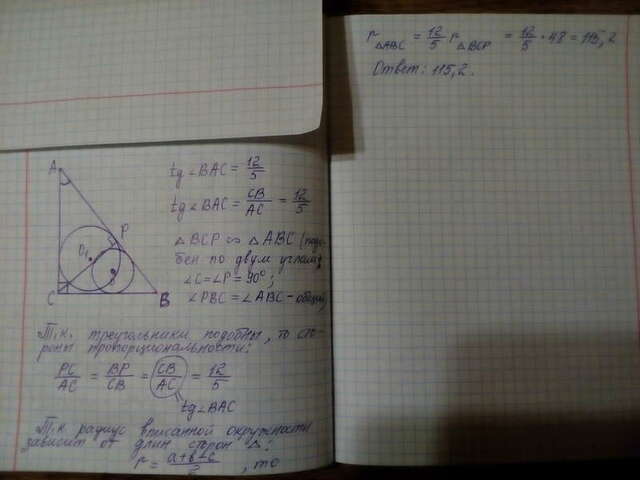 A
P
O₁
C
B
tg∠BAC = 12/5
tg∠BAC = CB/AC = 12/5
△BCP ∾ △ABC (подо-
бен по двум углам,
∠C = ∠P = 90°;
∠PBC = ∠ABC – общий)
Т.к. треугольники подобны, то сто-
роны пропорциональности:
PC/AC = BP/CB = CB/AC = 12/5
tg∠BAC
Т.к радиус вписанной окружности
зависит от длин сторон △:
r = a+b-c/2, то
r△ABC = 12/5 r△BCP = 12/5 · 48 = 115,2
Ответ: 115,2.